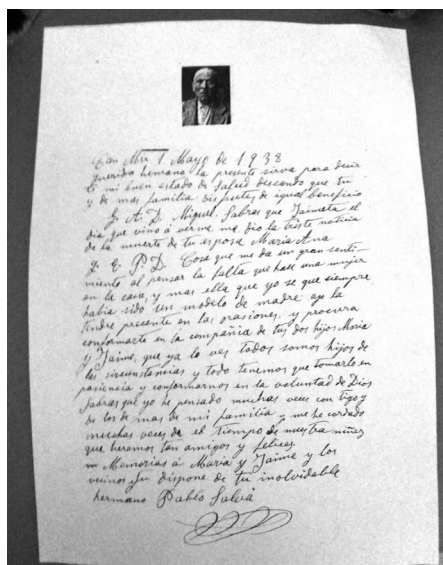 Can Mir 1 Mayo de 1938
querido hermano la presente sirva para decir
te mi buen estado de salud deseando que tu
y de mas familia disfrutes de igual beneficio
G. A. D. Miguel, Sabras que Jaimeta el
dia que vino á verme me dio la triste noticia
de la muerte de tu esposa Maria Ana
Q. E. P. D. Cosa que me da un gran senti-
miento al pensar la falta que hase una mujer
en la casa, y mas ella que yo se que siempre
habia sido un modelo de madre yo la
tendre presente en las orasiones, y procura
conformarte en la compañia de tus dos hijos Maria
y Jaime, que ya lo ves todos somos hijos de
las sircunstancias y todo tenemos que tomarlo en
pasiencia y conformarnos en la voluntad de Dios
Sabras que yo he pensado muchas veces con tigo y
de los de mas de mi familia y me he cordado
muchas veces de el tiempo de nuestra niñez
que heramos tan amigos y felices.
Memorias á Maria y Jaime y los
vecinos y tu dispone de tu inolvidable
hermano Pablo Salvá